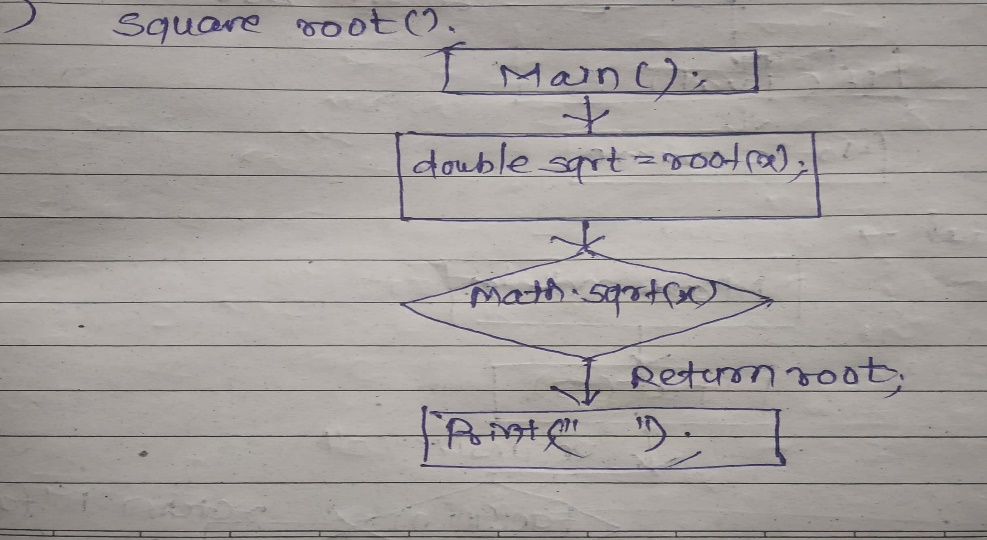 ) Square root().
Main();
double sqrt = root(x);
Math.sqrt(x)
Return root;
Print(" ").